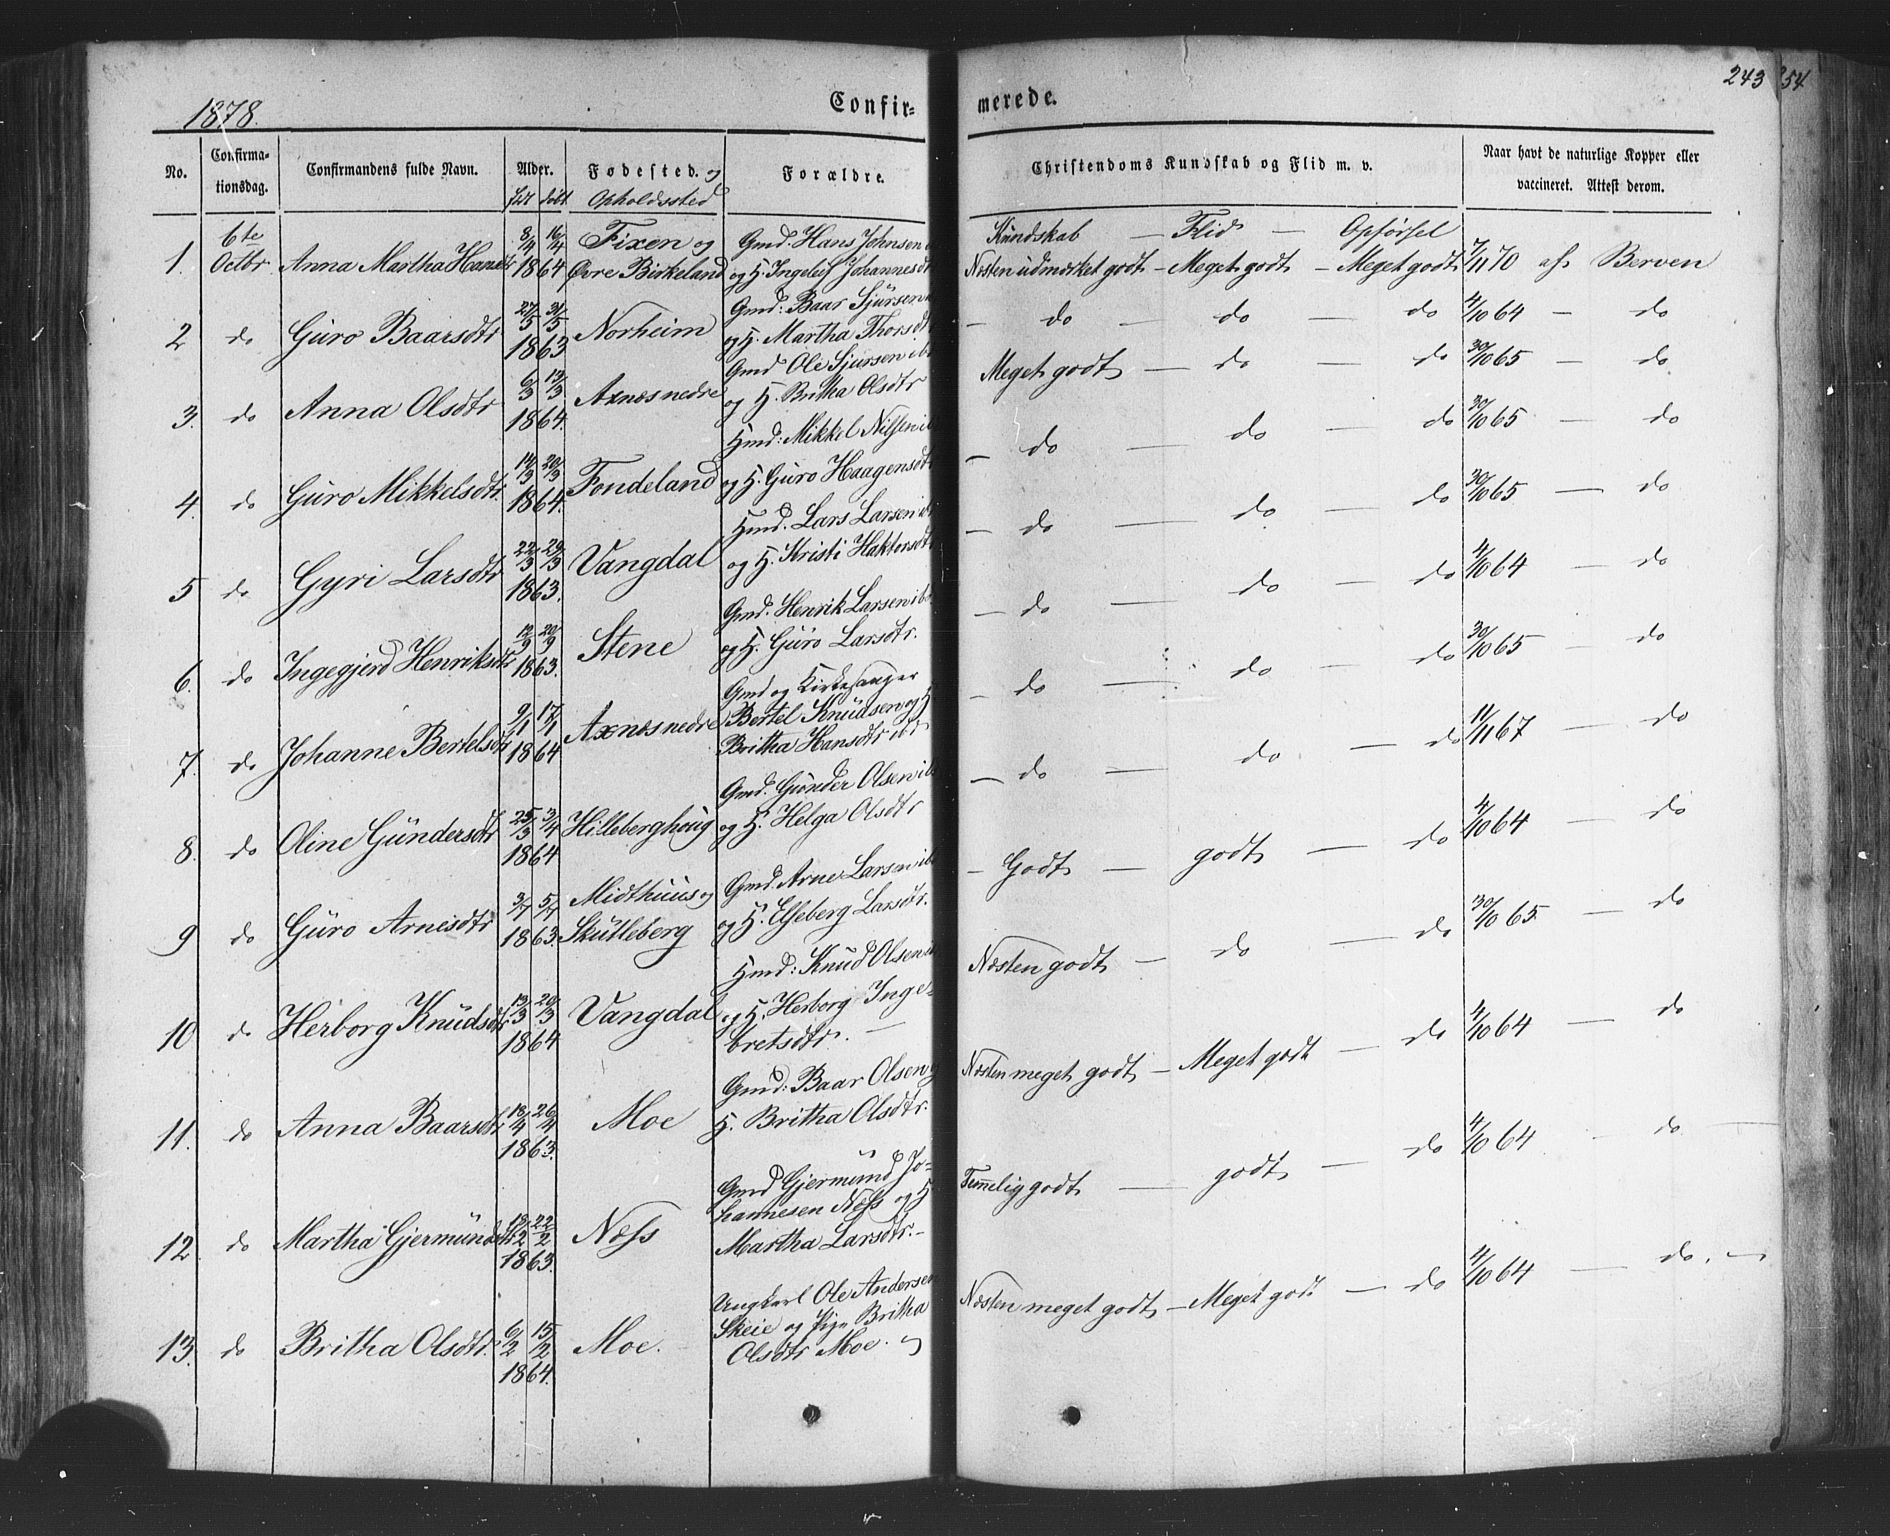 1878.
Confir-
merede.
243
54
No.
Confirma-
tionsdag.
Confirmandens fulde Navn.
Alder.
født døbt
Fødested. og
Opholdssted
Forældre.
Christendoms Kundskab og Flid m. v.
Naar havt de naturlige Kopper eller
vaccineret. Attest derom.
Kundskab — Flid — Opførsel
1. 6te Octbr Anna Martha Hansdtr 8/4 16/4 1864 Fixen og Øvre Birkeland
Gmd: Hans Johnsen
og H. Ingeleif Johannesdtr
Næsten udmærket godt — Meget godt — Meget godt 7/11 70 af Berven
2 do Guro Baarsdtr 27/5 31/5 1863 Norheim
Gmd: Baar Sjursen
og H. Martha Thorsdt
— do — do — do 4/10 64 — do
3. do Anna Olsdtr 6/3 13/3 1864. Axnæs nedre
Gmd Ole Sjursen ib
og H. Britha Olsdtr
Meget godt — do — do 30/10 65 — do
4. do Guro Mikkelsdtr. 14/3 20/3 1864. Fondeland
Hmd: Mikkel Nilsen ib
og H. Guro Haagensdt
— do — do — do 30/10 65 — do
5 do Gyri Larsdtr 22/3 29/3 1863. Vangdal
Hmd. Lars Larsen ib
og H. Kristi Haktorsdt
— do — do — do 30/10 65 — do
6. do Ingegjerd Henriksdtr 12/9 20/9 1863. Stene
Gmd. Henrik Larsen ib
og H. Guro Larsdtr.
— do — do — do 4/10 64 — do
7. do Johanne Bertelsdtr 9/1 17/1 1864 Axnæs nedre
Gmd og Kirkesanger
Bertel Knudsen og H
Britha Hansdtr ibd
— do — do — do 30/10 65 — do
8. do Oline Gundersdtr 25/3 3/4 1864 Hilleberghoug
Gmd. Gunder Olsen ib
og H. Helga Olsdtr
— do — do — do 11/11 67 — do
9 do Guro Arnesdtr 3/7 5/7 1863. Midthuus og Skutleberg
Gmd. Arne Larsen ib
og H. Elseberg Larsdtr.
— Godt — godt — do 4/10 64 — do
10 do Herborg Knudsdtr 13/3 20/3 1864 Vangdal
Hmd: Knud Olsen
og H. Herborg Inge-
bretsdtr. —
Næsten godt — do — do 30/10 65 — do
11. do Anna Baarsdtr 18/4 26/4 1863. Moe
Gmd: Baar Olsen og
H. Britha Olsdtr.
Næsten meget godt — Meget godt — do 4/10 64 — do
12 do Martha Gjermundsdtr 13/2 22/2 1863. Næss
Gmd Gjermund Jo-
hannesen Næss og H
Martha Larsdtr. —
Temmelig godt — godt — do 4/10 64 — do
13. do Britha Olsdtr. 6/2 15/2 1864. Moe.
Ungkarl Ole Andersen
Skeie og Pige Britha
Olsdtr Moe.
Næsten meget godt — Meget godt — do 4/10 64 — do. —